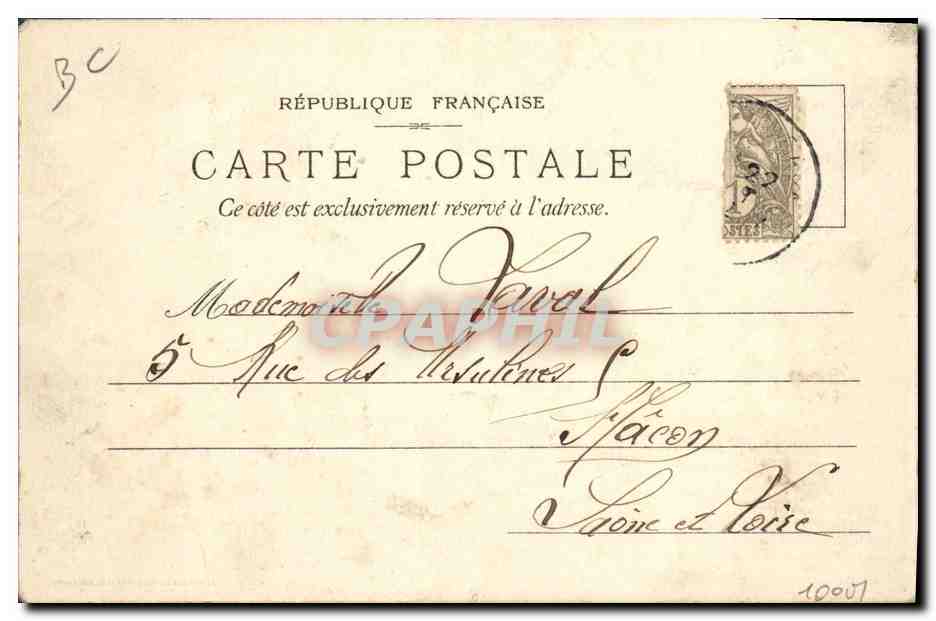 BC
RÉPUBLIQUE FRANÇAISE
CARTE POSTALE
Ce côté est exclusivement réservé à l'adresse.
1
OSTES
Mademoiselle Laval
CPAPHIL
5 Rue des Ursulines 5
Mâcon
Saône et Loire